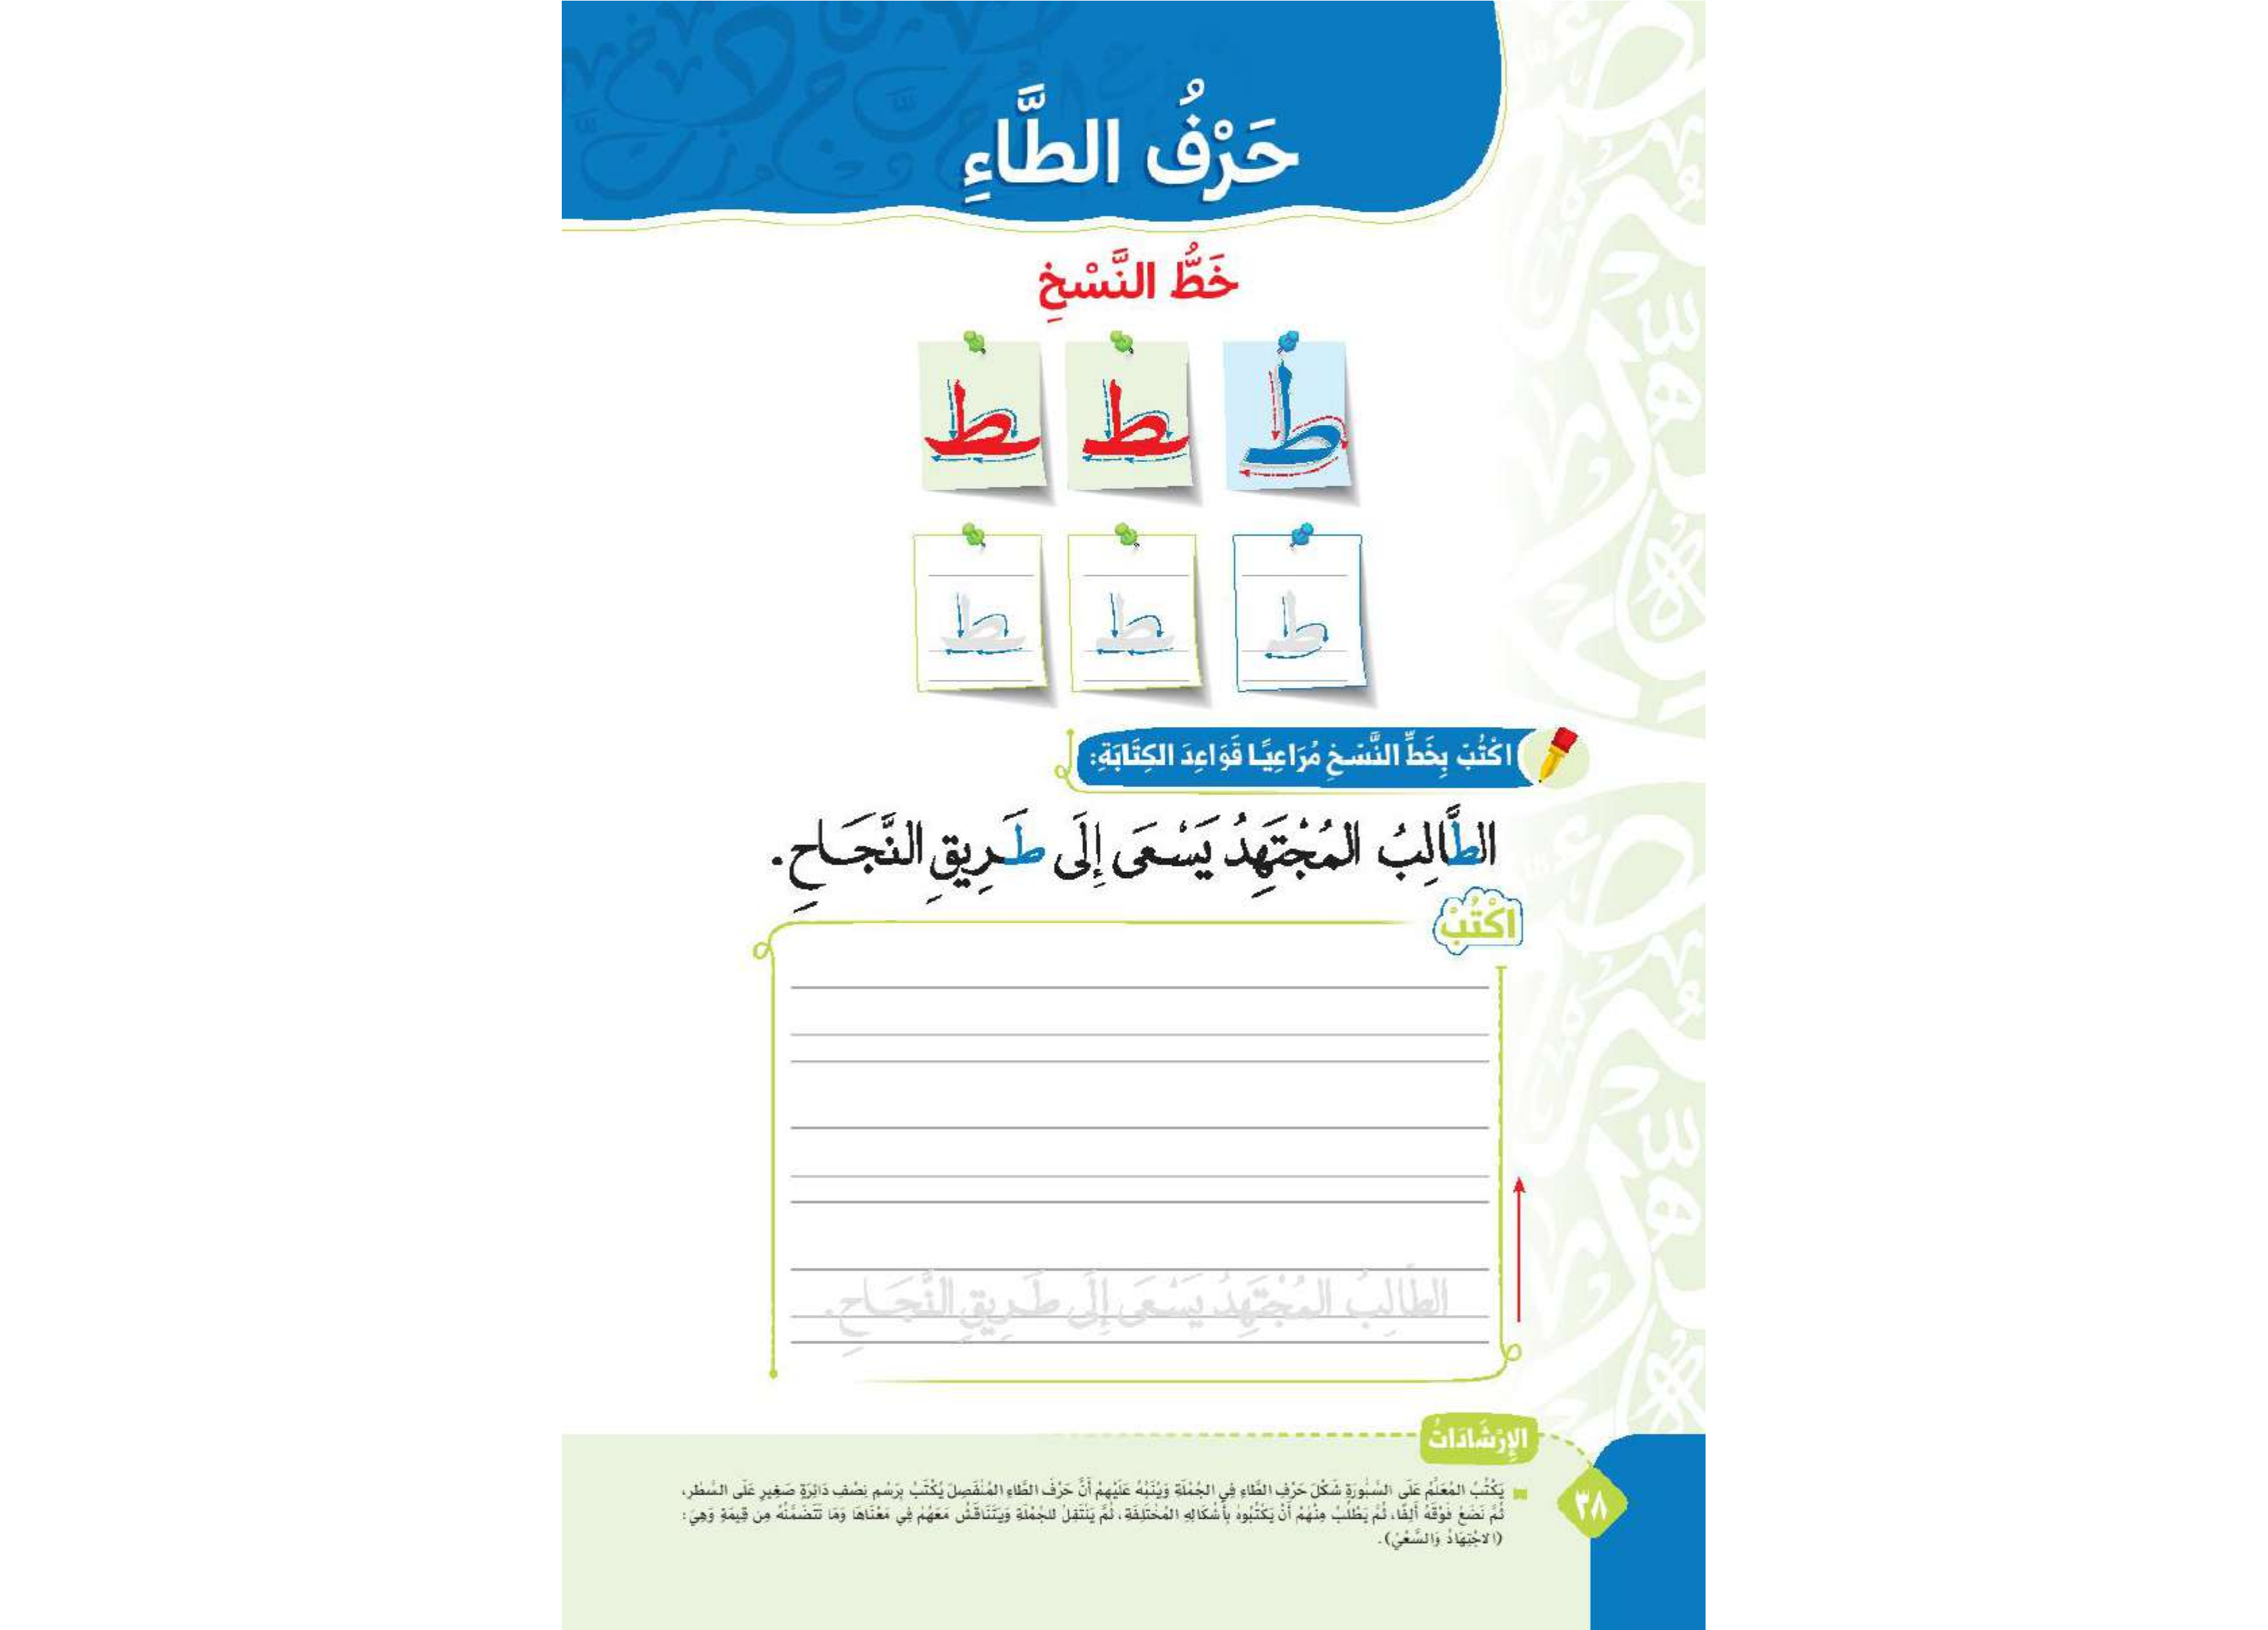 حَرْفُ الطَّاءِ
خَطُّ النَّسْخِ
ط ط ط
ط ط ط
اكْتُبْ بِخَطِّ النَّسْخِ مُرَاعِيًا قَوَاعِدَ الكِتَابَةِ:
الطَّالِبُ المُجْتَهِدُ يَسْعَى إِلَى طَرِيقِ النَّجَاحِ.
اكْتُبْ
الطَّالِبُ المُجْتَهِدُ يَسْعَى إِلَى طَرِيقِ النَّجَاحِ.
الإِرْشَادَاتُ
يَكْتُبُ المُعَلِّمُ عَلَى السَّبُّورَةِ شَكْلَ حَرْفِ الطَّاءِ فِي الجُمْلَةِ وَيُنَبِّهُ عَلَيْهِمْ أَنَّ حَرْفَ الطَّاءِ المُنْفَصِلَ يُكْتَبُ بِرَسْمِ نِصْفِ دَائِرَةٍ صَغِيرٍ عَلَى السَّطْرِ،
ثُمَّ نَضَعُ فَوْقَهُ أَلِفًا، ثُمَّ يَطْلُبُ مِنْهُمْ أَنْ يَكْتُبُوهُ بِأَشْكَالِهِ المُخْتَلِفَةِ، ثُمَّ يَنْتَقِلُ لِلجُمْلَةِ وَيَتَنَاقَشُ مَعَهُمْ فِي مَعْنَاهَا وَمَا تَتَضَمَّنُهُ مِن قِيمَةٍ وَهِيَ:
(الاجْتِهَادُ وَالسَّعْيُ).
٣٨